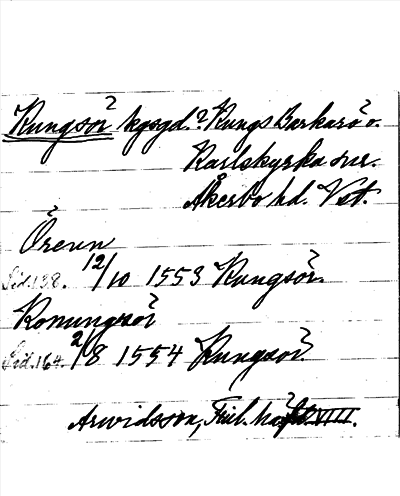 Kungsör kgsgd.? Kungs Barkarö o.
Karlskyrka snr.
Åkerbo hd. Vst.
Örenn
Sid. 138. 12/10 1553 Kungsör.
Konungsör
Sid. 164. 2/8 1554 Kungsör
Arwidsson, Finl. VIII.